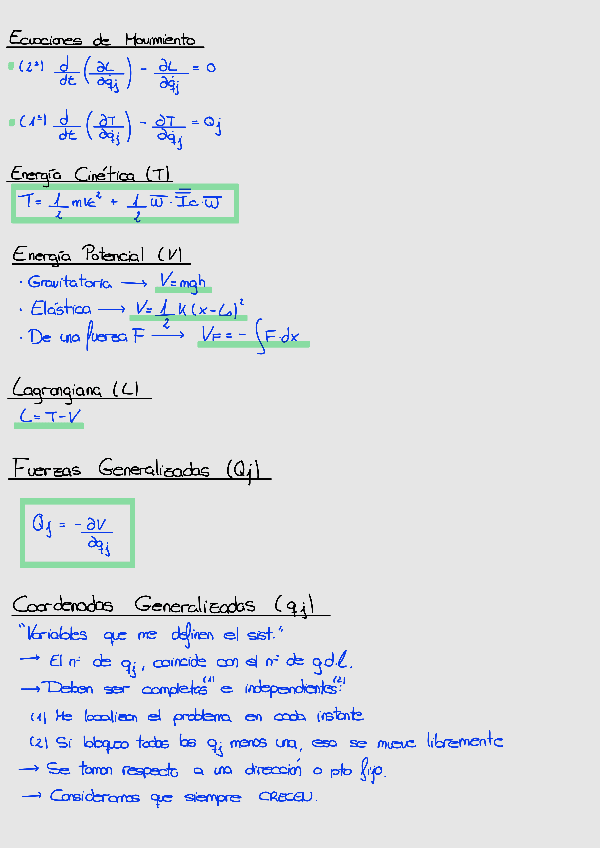 Ecuaciones de Movimiento
• (2ª) d/dt (∂L/∂q̇j) - ∂L/∂qj = 0
• (1ª) d/dt (∂T/∂q̇j) - ∂T/∂qj = Qj
Energía Cinética (T)
T = 1/2 m vc² + 1/2 ω̅ · I̿c · ω̅
Energía Potencial (V)
· Gravitatoria → V = mgh
· Elástica → V = 1/2 K (x - L₀)²
· De una fuerza F → VF = - ∫ F·dx
Lagrangiana (L)
L = T - V
Fuerzas Generalizadas (Qj)
Qj = - ∂V/∂qj
Coordenadas Generalizadas (qj)
"Variables que me definen el sist."
→ El nº de qj, coincide con el nº de g.d.l.
→ "Deben ser completas⁽¹⁾ e independientes⁽²⁾"
(1) Me localizan el problema en cada instante
(2) Si bloqueo todas las qj menos una, esa se mueve libremente
→ Se toman respecto a una dirección o pto fijo.
→ Consideramos que siempre CRECEN.